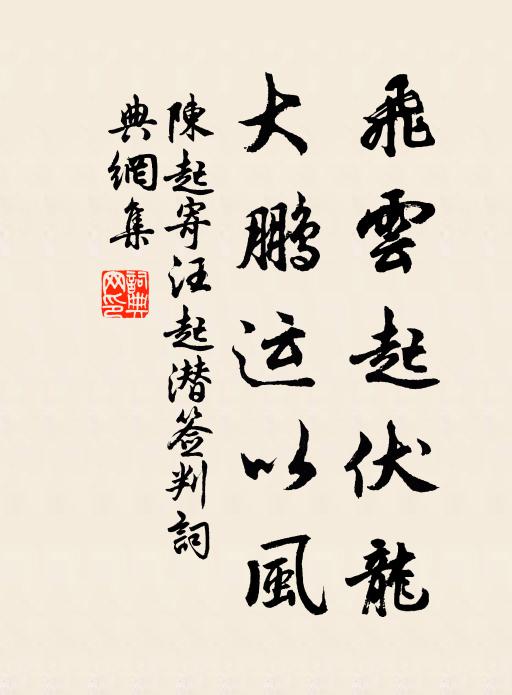 飛雲起伏龍
大鵬运以風
陳起寄汪起潜签判詞
典網集
詞典
网印